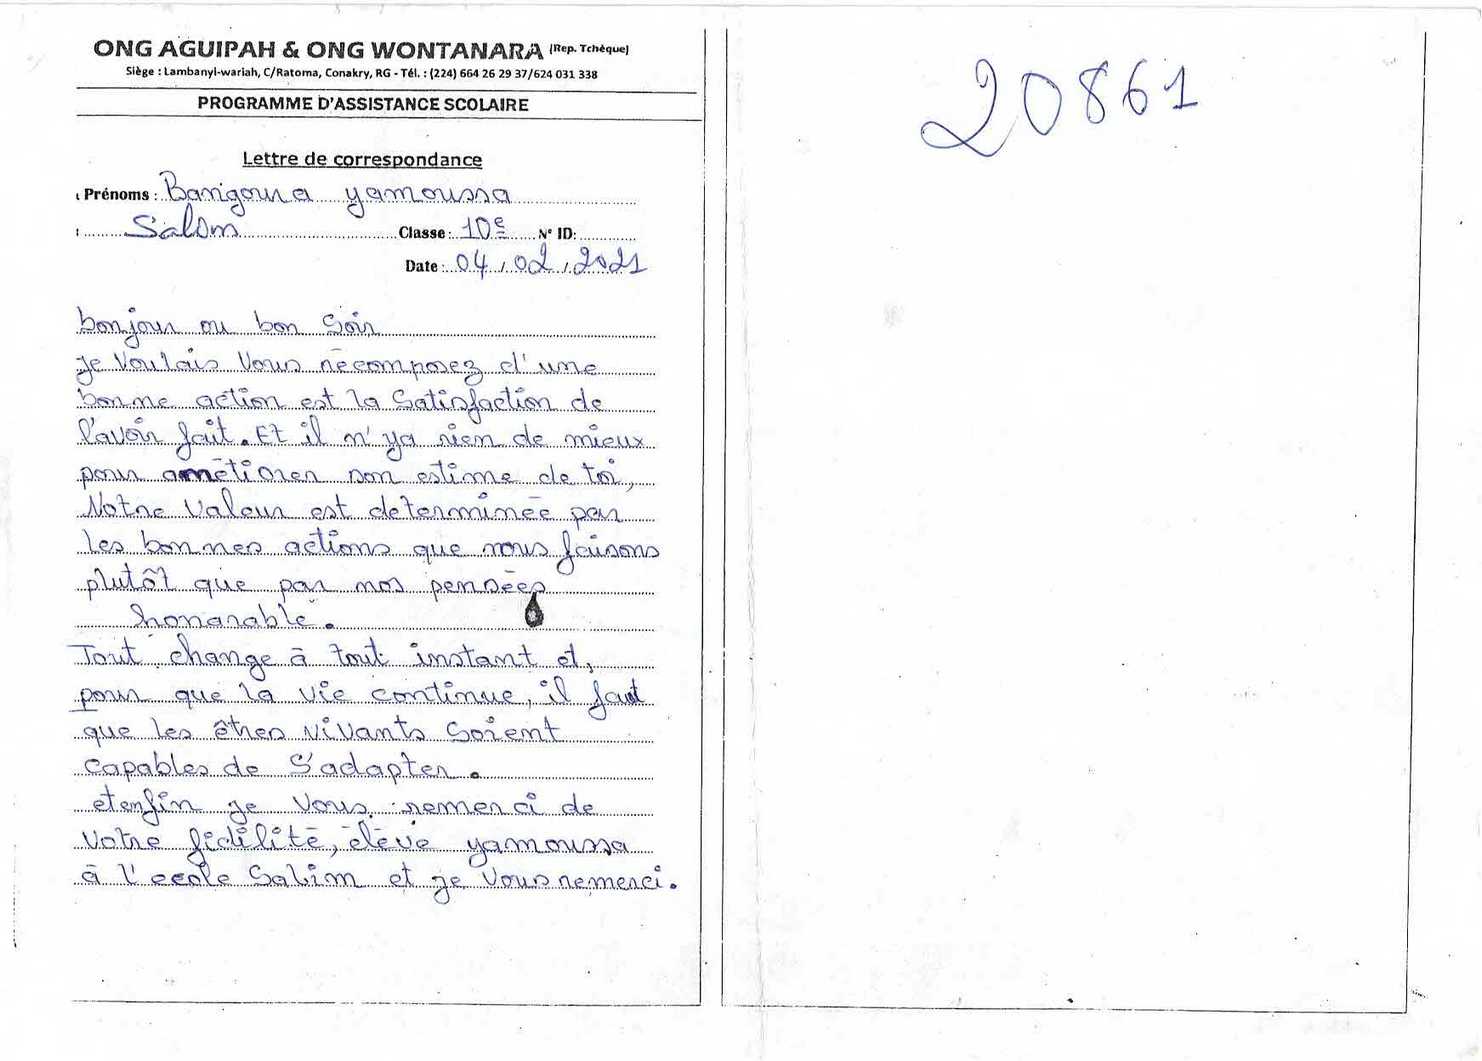 ONG AGUIPAH & ONG WONTANARA (Rep. Tchèque)
Siège : Lambanyl-wariah, C/Ratoma, Conakry, RG - Tél. : (224) 664 26 29 37/624 031 338
PROGRAMME D'ASSISTANCE SCOLAIRE
Lettre de correspondance
Prénoms : Bangoura yamoussa
Classe : 10e N° ID:
Date : 04/02/2021
bonjour ou bon Soir
je Voulais Vous récomposez d'une
bonne action est la Satisfaction de
l'avoir fait. Et il n'ya rien de mieux
pour amétiorer son estime de toi,
Notre Valeur est determinée par
les bonnes actions que nous faisons
plutôt que par nos pensées
honarable.
Tout change à tout instant et,
pour que la vie continue, il faut
que les êtres vivants Soient
capables de S'adapter.
etenfin je Vous remerci de
Votre fidilité, élève yamoussa
à l'ecole Salim et je Vous remerci.
20861